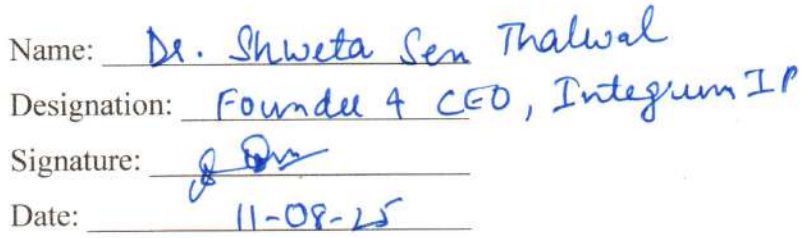 Name: Dr. Shweta Sen Thalwal
Designation: Founder & CEO, Integrum IP
Signature:
Date: 11-08-25